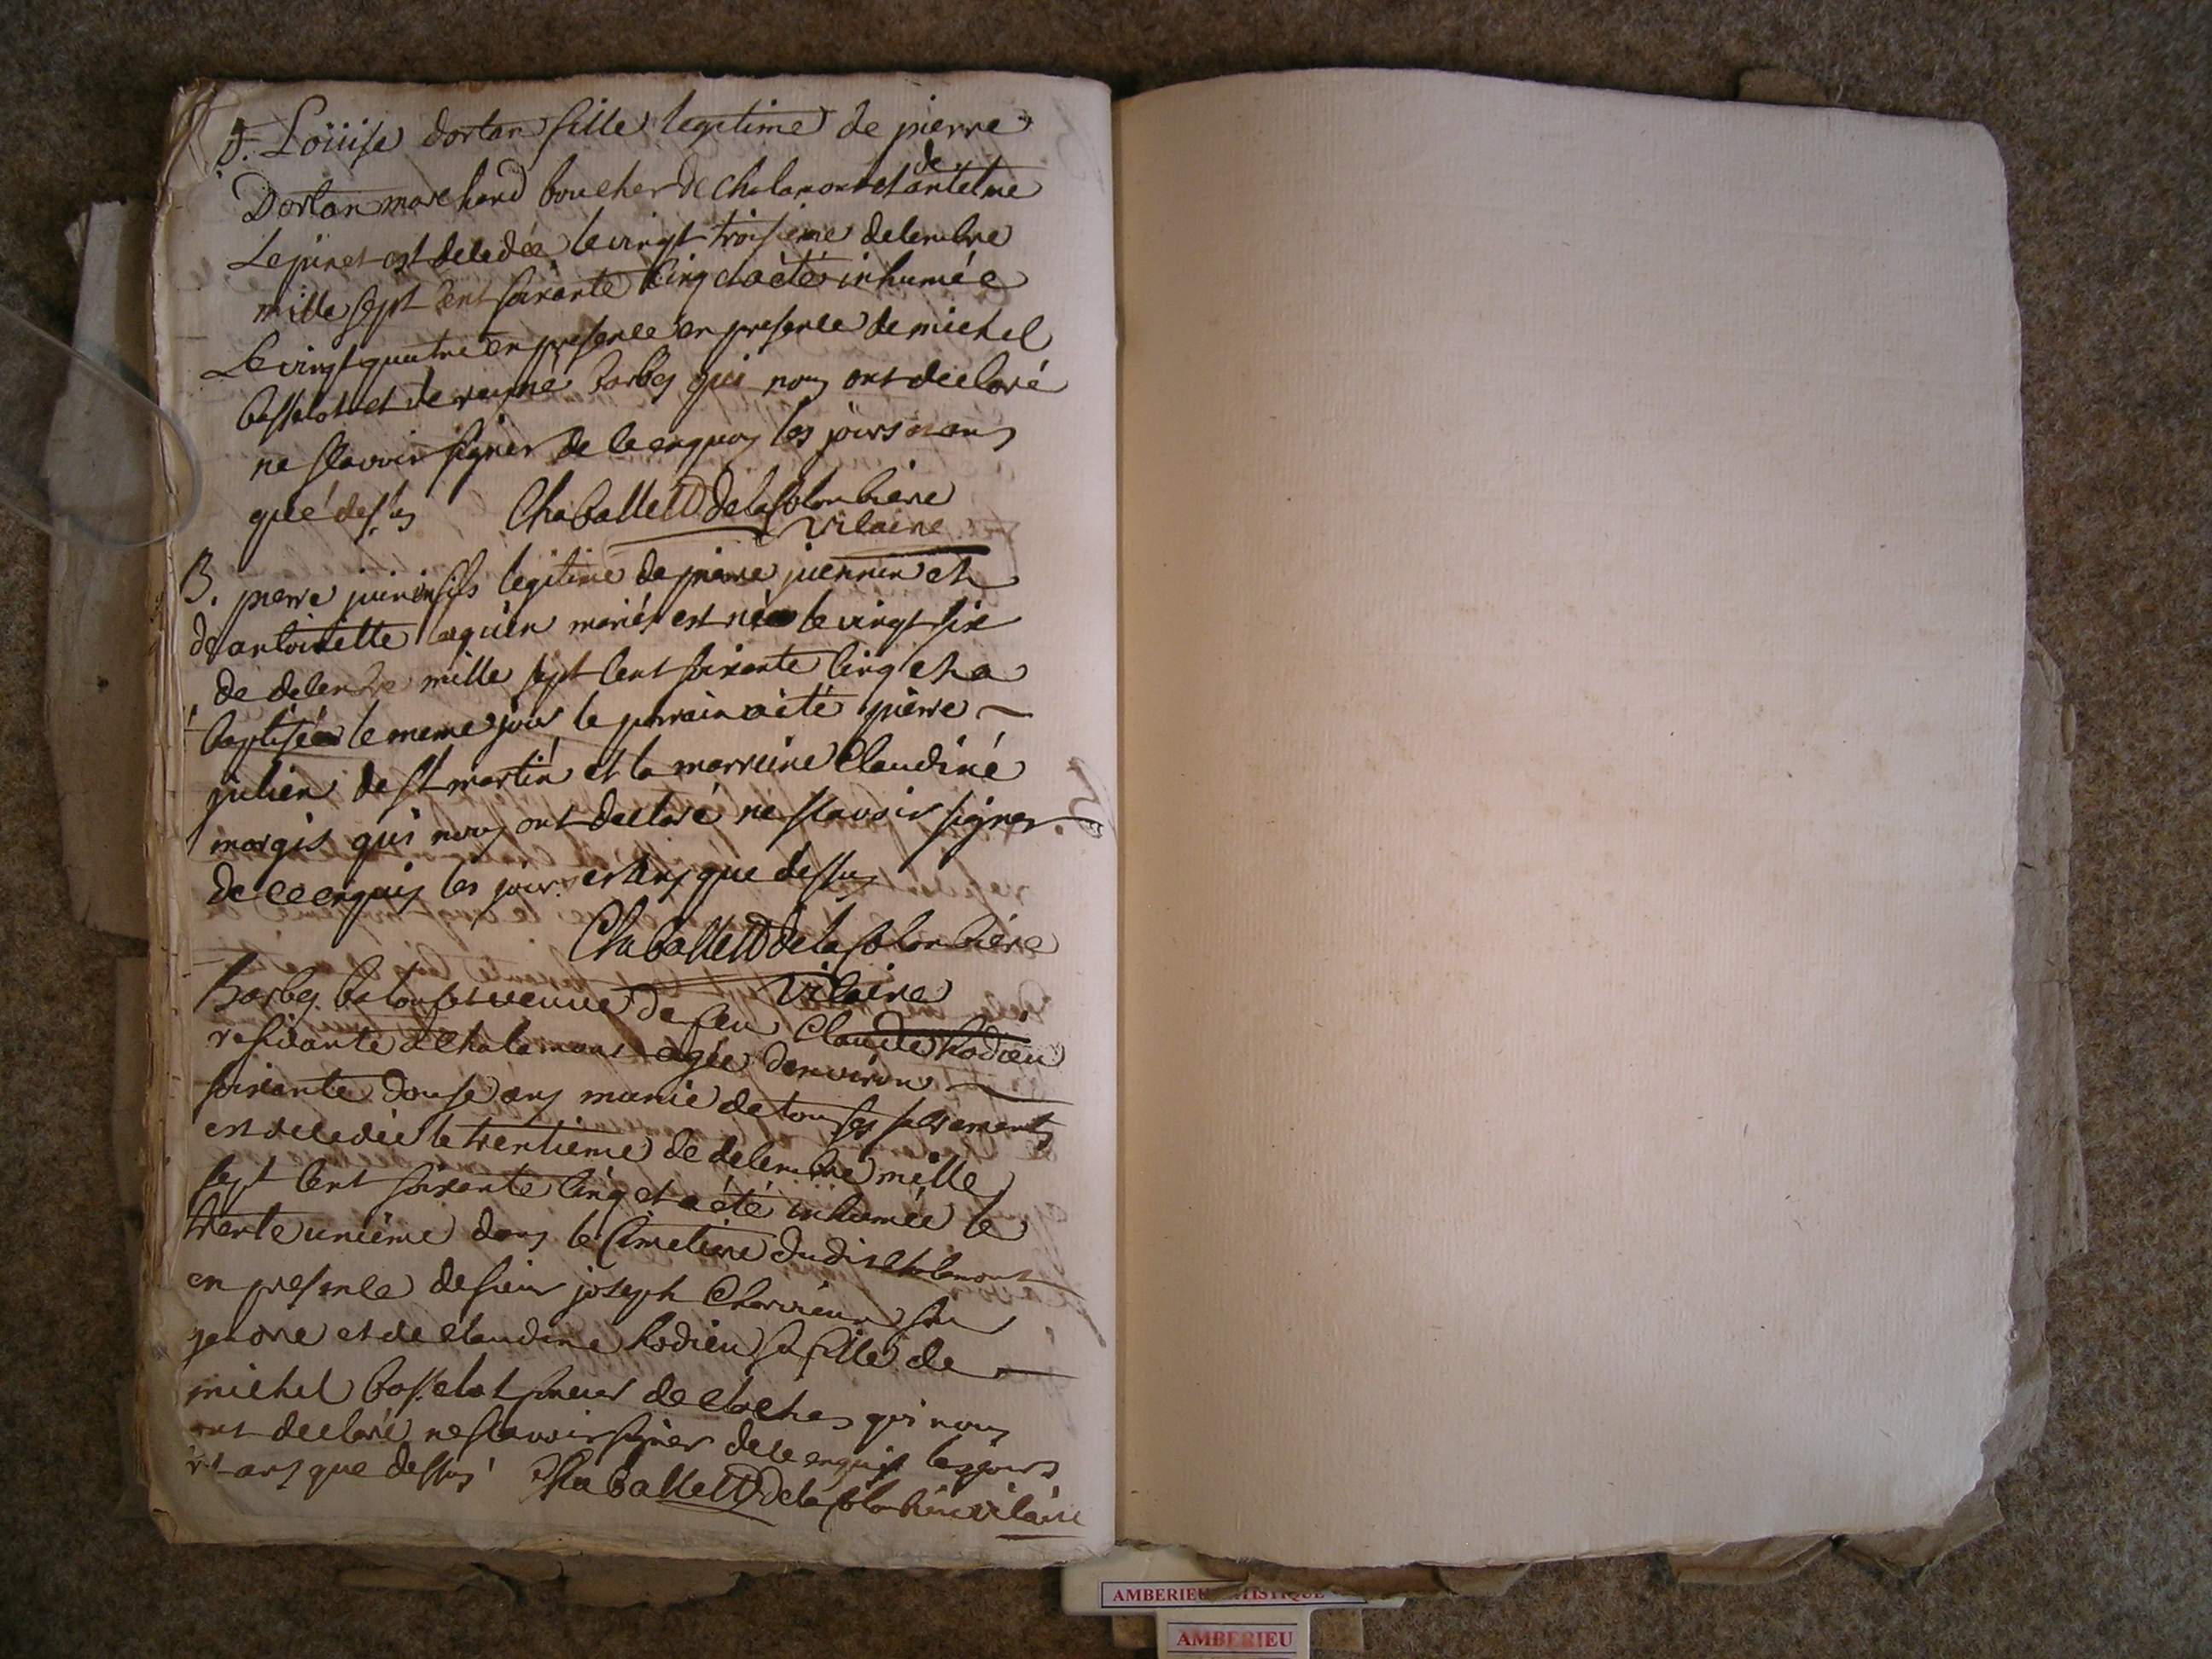 S. Loüise dortan fille legitime de pierre
Dortan marchand boucher de chalamont et de antelme
Lejuret est decedée le vingt troisieme decembre
mille sept cent soixante cinq et a été inhumée
Le vingt quatre en presence en presence de michel
basselot et de reyne barbes qui nous ont declaré
ne scavoir signer de ce enquis les jours et ans
que dessus Chaballet De la Colombiere
vicaire
B. pierre juénin fils legitime de pierre juennin et
de antoinette mariés est né le vingt six
de decembre mille sept cent soixante cinq et a
baptisé le meme jour le parrain a été pierre
julien de st martin et la marreine Claudine
margis qui nous ont declaré ne scavoir signer
de ce enquis les jours et ans que dessus
Chaballet De la Colombiere
vicaire
barbes veuve de feu Claude hodieu
residante a Chalamont agée denviron
soixante douse ans munie de tous ses sacrements
est decedée le trentieme de decembre mille
sept cent soixante cinq et a été inhumée le
trente unieme dans le Cimetiere dudit chalamont
en presence de sieur joseph Charvieux son
gendre et de claudine hodieu sa fille de
michel basselot soneur de cloches qui nous
ont declaré ne scavoir signer de ce enquis les jours
et ans que dessus Chaballet De la Colombiere vicaire
AMBERIEU
AMBERIEU